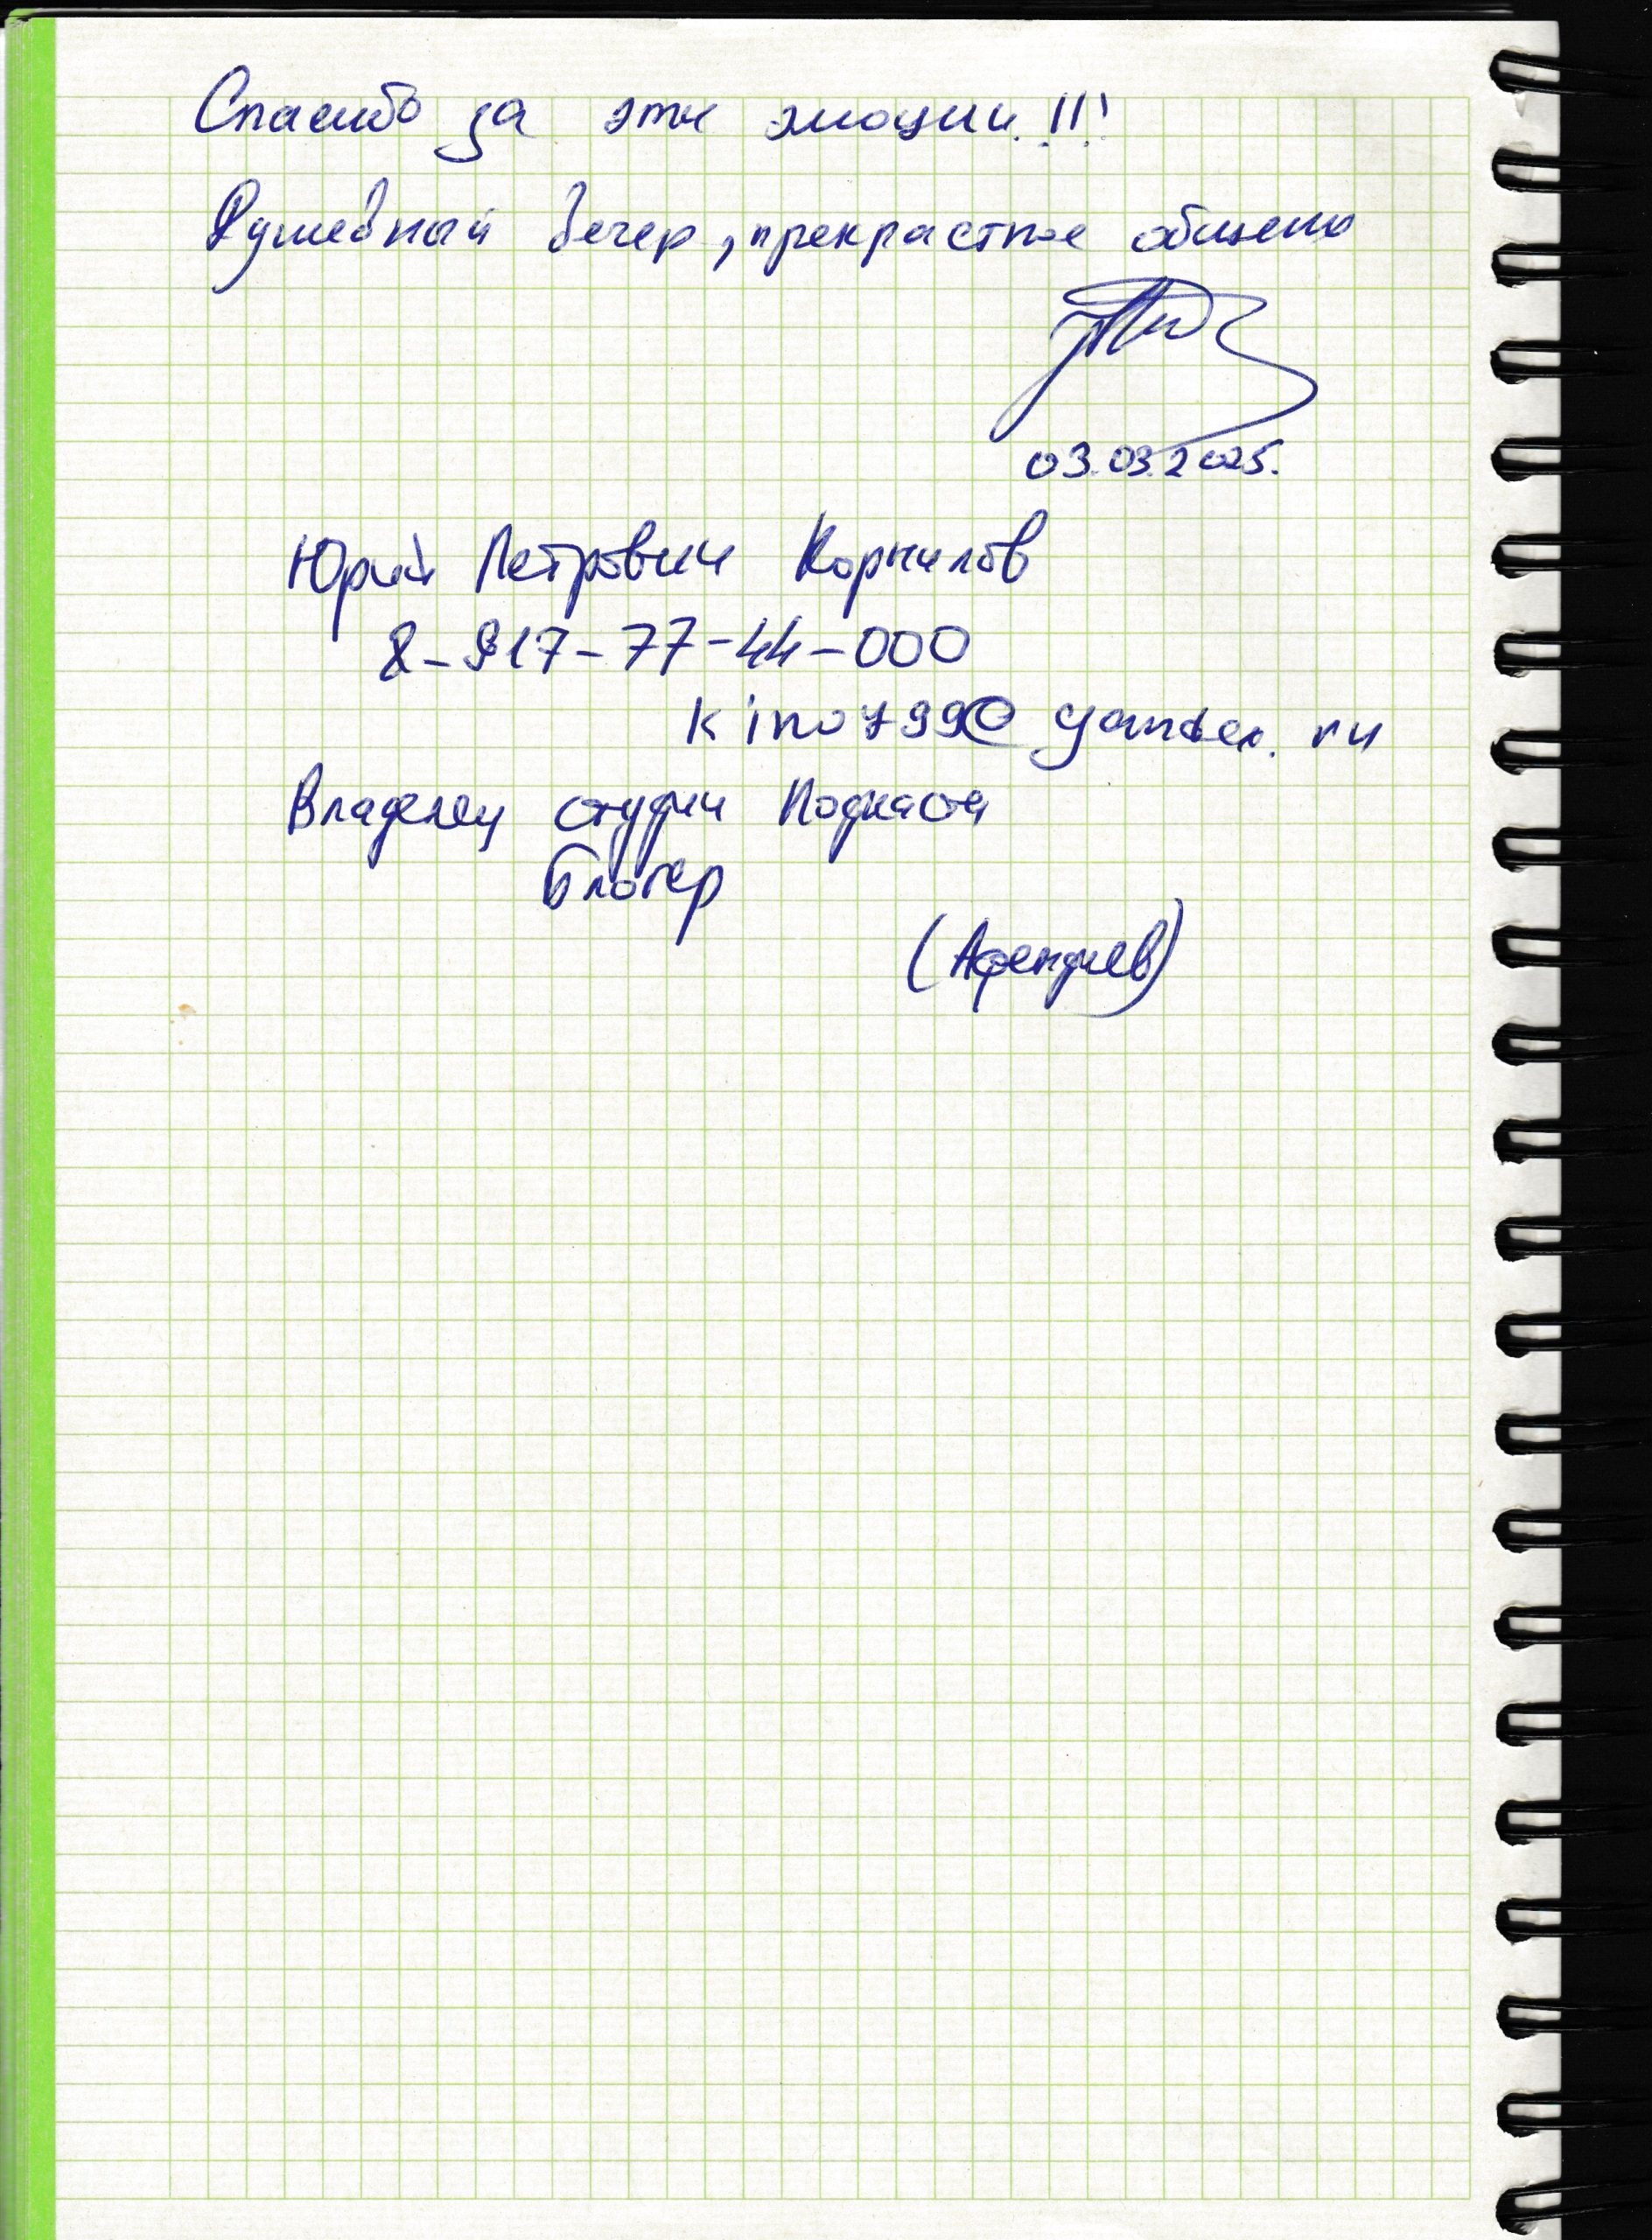 Спасибо за эти эмоции!!!
Душевный вечер, прекрастное общение
03.03.2025.
Юрий Петрович Корнилов
8-917-77-44-000
kino799@yandex.ru
Владелец студии Подкаста
Блогер
(Афендиев)